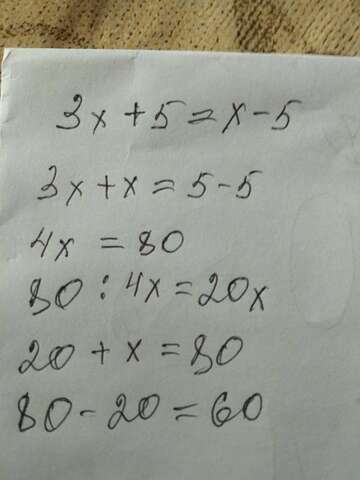 3x+5=x-5
3x+x=5-5
4x=80
80:4x=20x
20+x=80
80-20=60